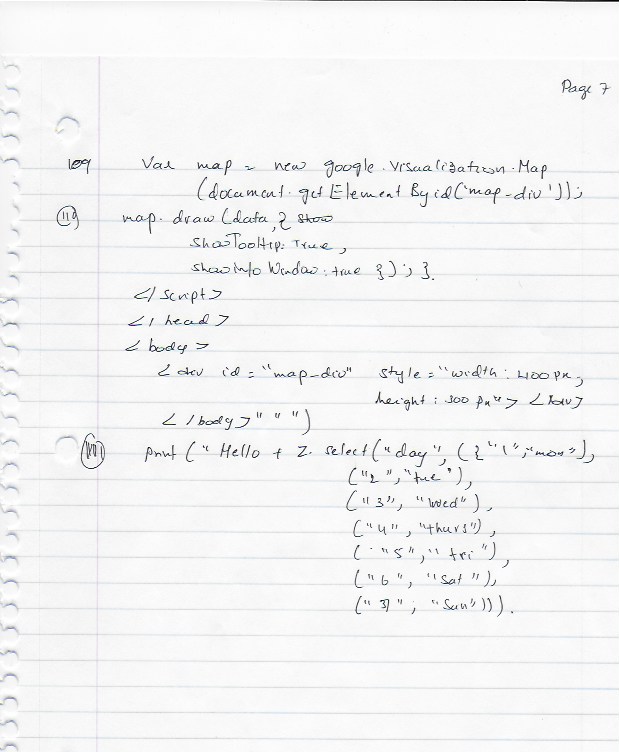 Page 7
109 Var map = new google.visualization.Map
(document.getElementByid('map-div'));
110 map.draw(data, { show
showTooltip: True,
showInfo Window: true }); }
</script>
</head>
<body>
<div id = "map-div" style = "width: 400px;
height: 300px"> </div>
</body>" " ")
print (" Hello + Z. select("day", ({"1","mon"),
("2", "tue"),
("3", "wed"),
("4", "thurs"),
("5", "fri"),
("6", "Sat"),
("7", "Sun"))).